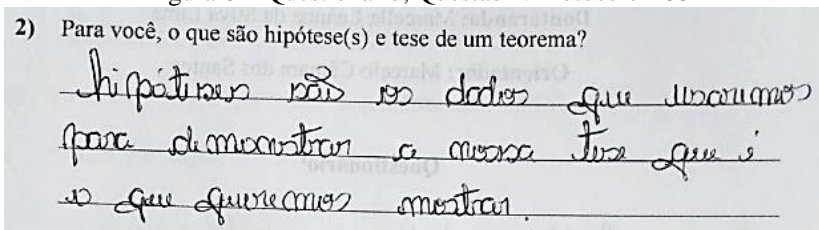 2) Para você, o que são hipótese(s) e tese de um teorema?
hipóteses são os dados que usaremos
para demonstrar a nossa tese que é
o que queremos mostrar.